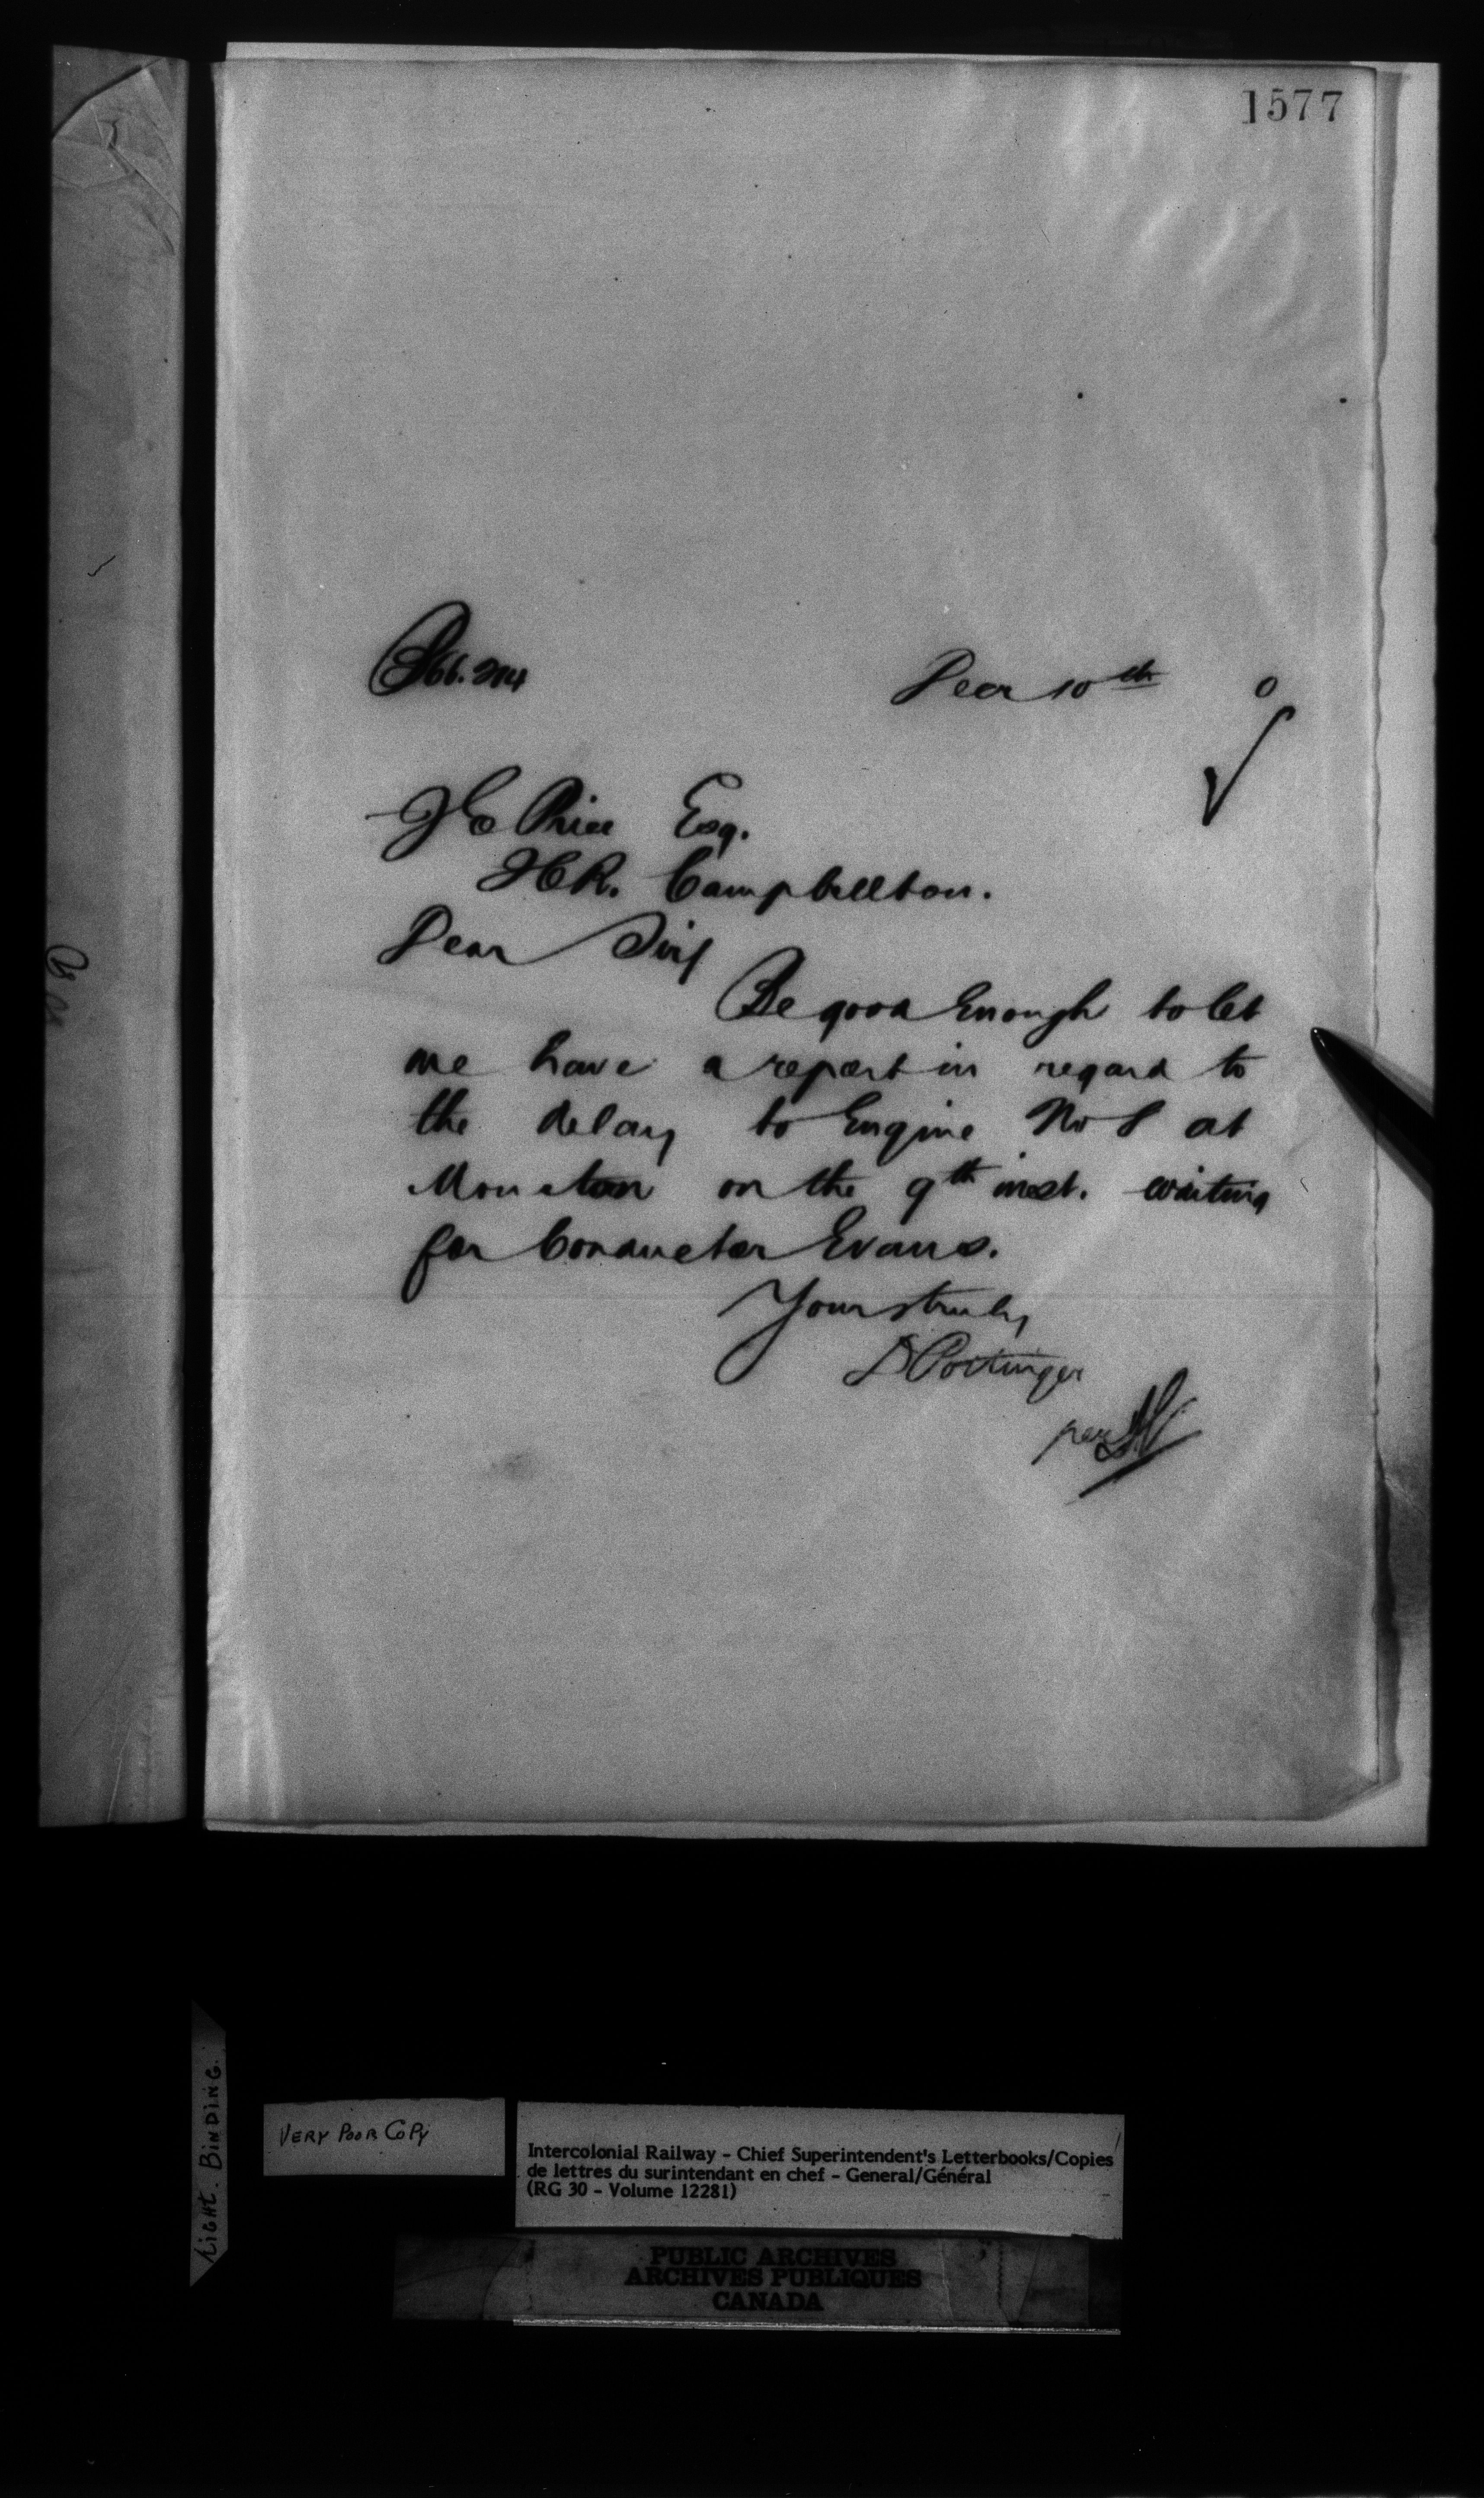 1577
Decr 10th 0
J C Price Esq.
ICR. Campbellton.
Dear Sir/
Be good Enough to let
me have a report in regard to
the delay to Engine No 8 at
Moncton on the 9th inst. waiting
for Conductor Evans.
Yours truly
D Pottinger
per
LIGHT. BINDING.
VERY POOR COPY
Intercolonial Railway - Chief Superintendent's Letterbooks/Copies
de lettres du surintendant en chef - General/Général
(RG 30 - Volume 12281)
PUBLIC ARCHIVES
ARCHIVES PUBLIQUES
CANADA